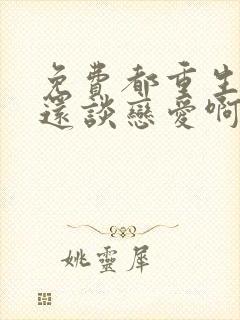 免費都重生
還談戀愛啊
姚靈犀